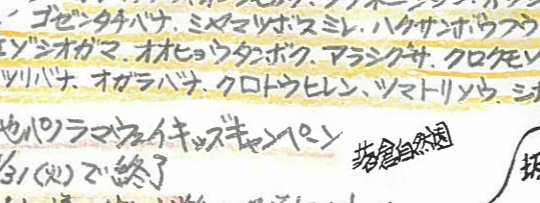 ゴゼンタチバナ、ミヤマツボスミレ、ハクサンボウフウ
エゾシオガマ、オオヒョウタンボク、アラシグサ、クロクモソ
ツリバナ、オガラバナ、クロトウヒレン、ツマトリソウ、シホ
やパノラマウェイキッズキャンペーン
/31(火)で終了
栂倉自然園